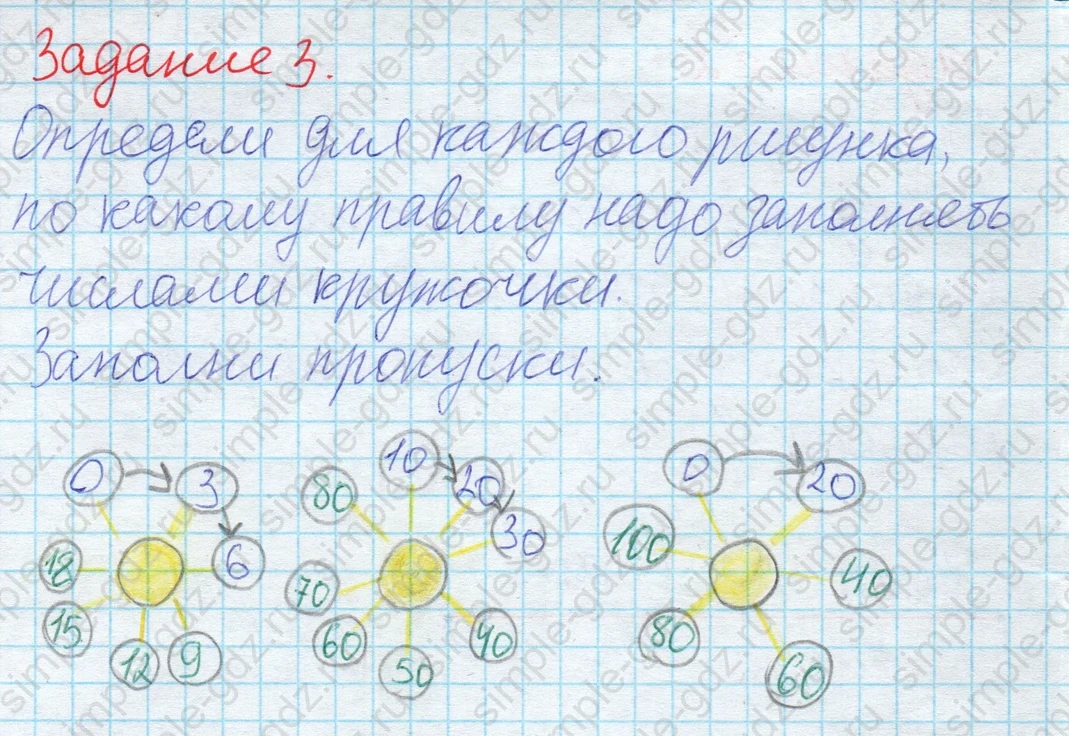 Задание 3.
Определи для каждого рисунка,
по какому правилу надо заполнять
числами кружочки.
Заполни пропуски.
0 3 6 9 12 15 18
10 20 30 40 50 60 70 80
0 20 40 60 80 100
simple-gdz.ru